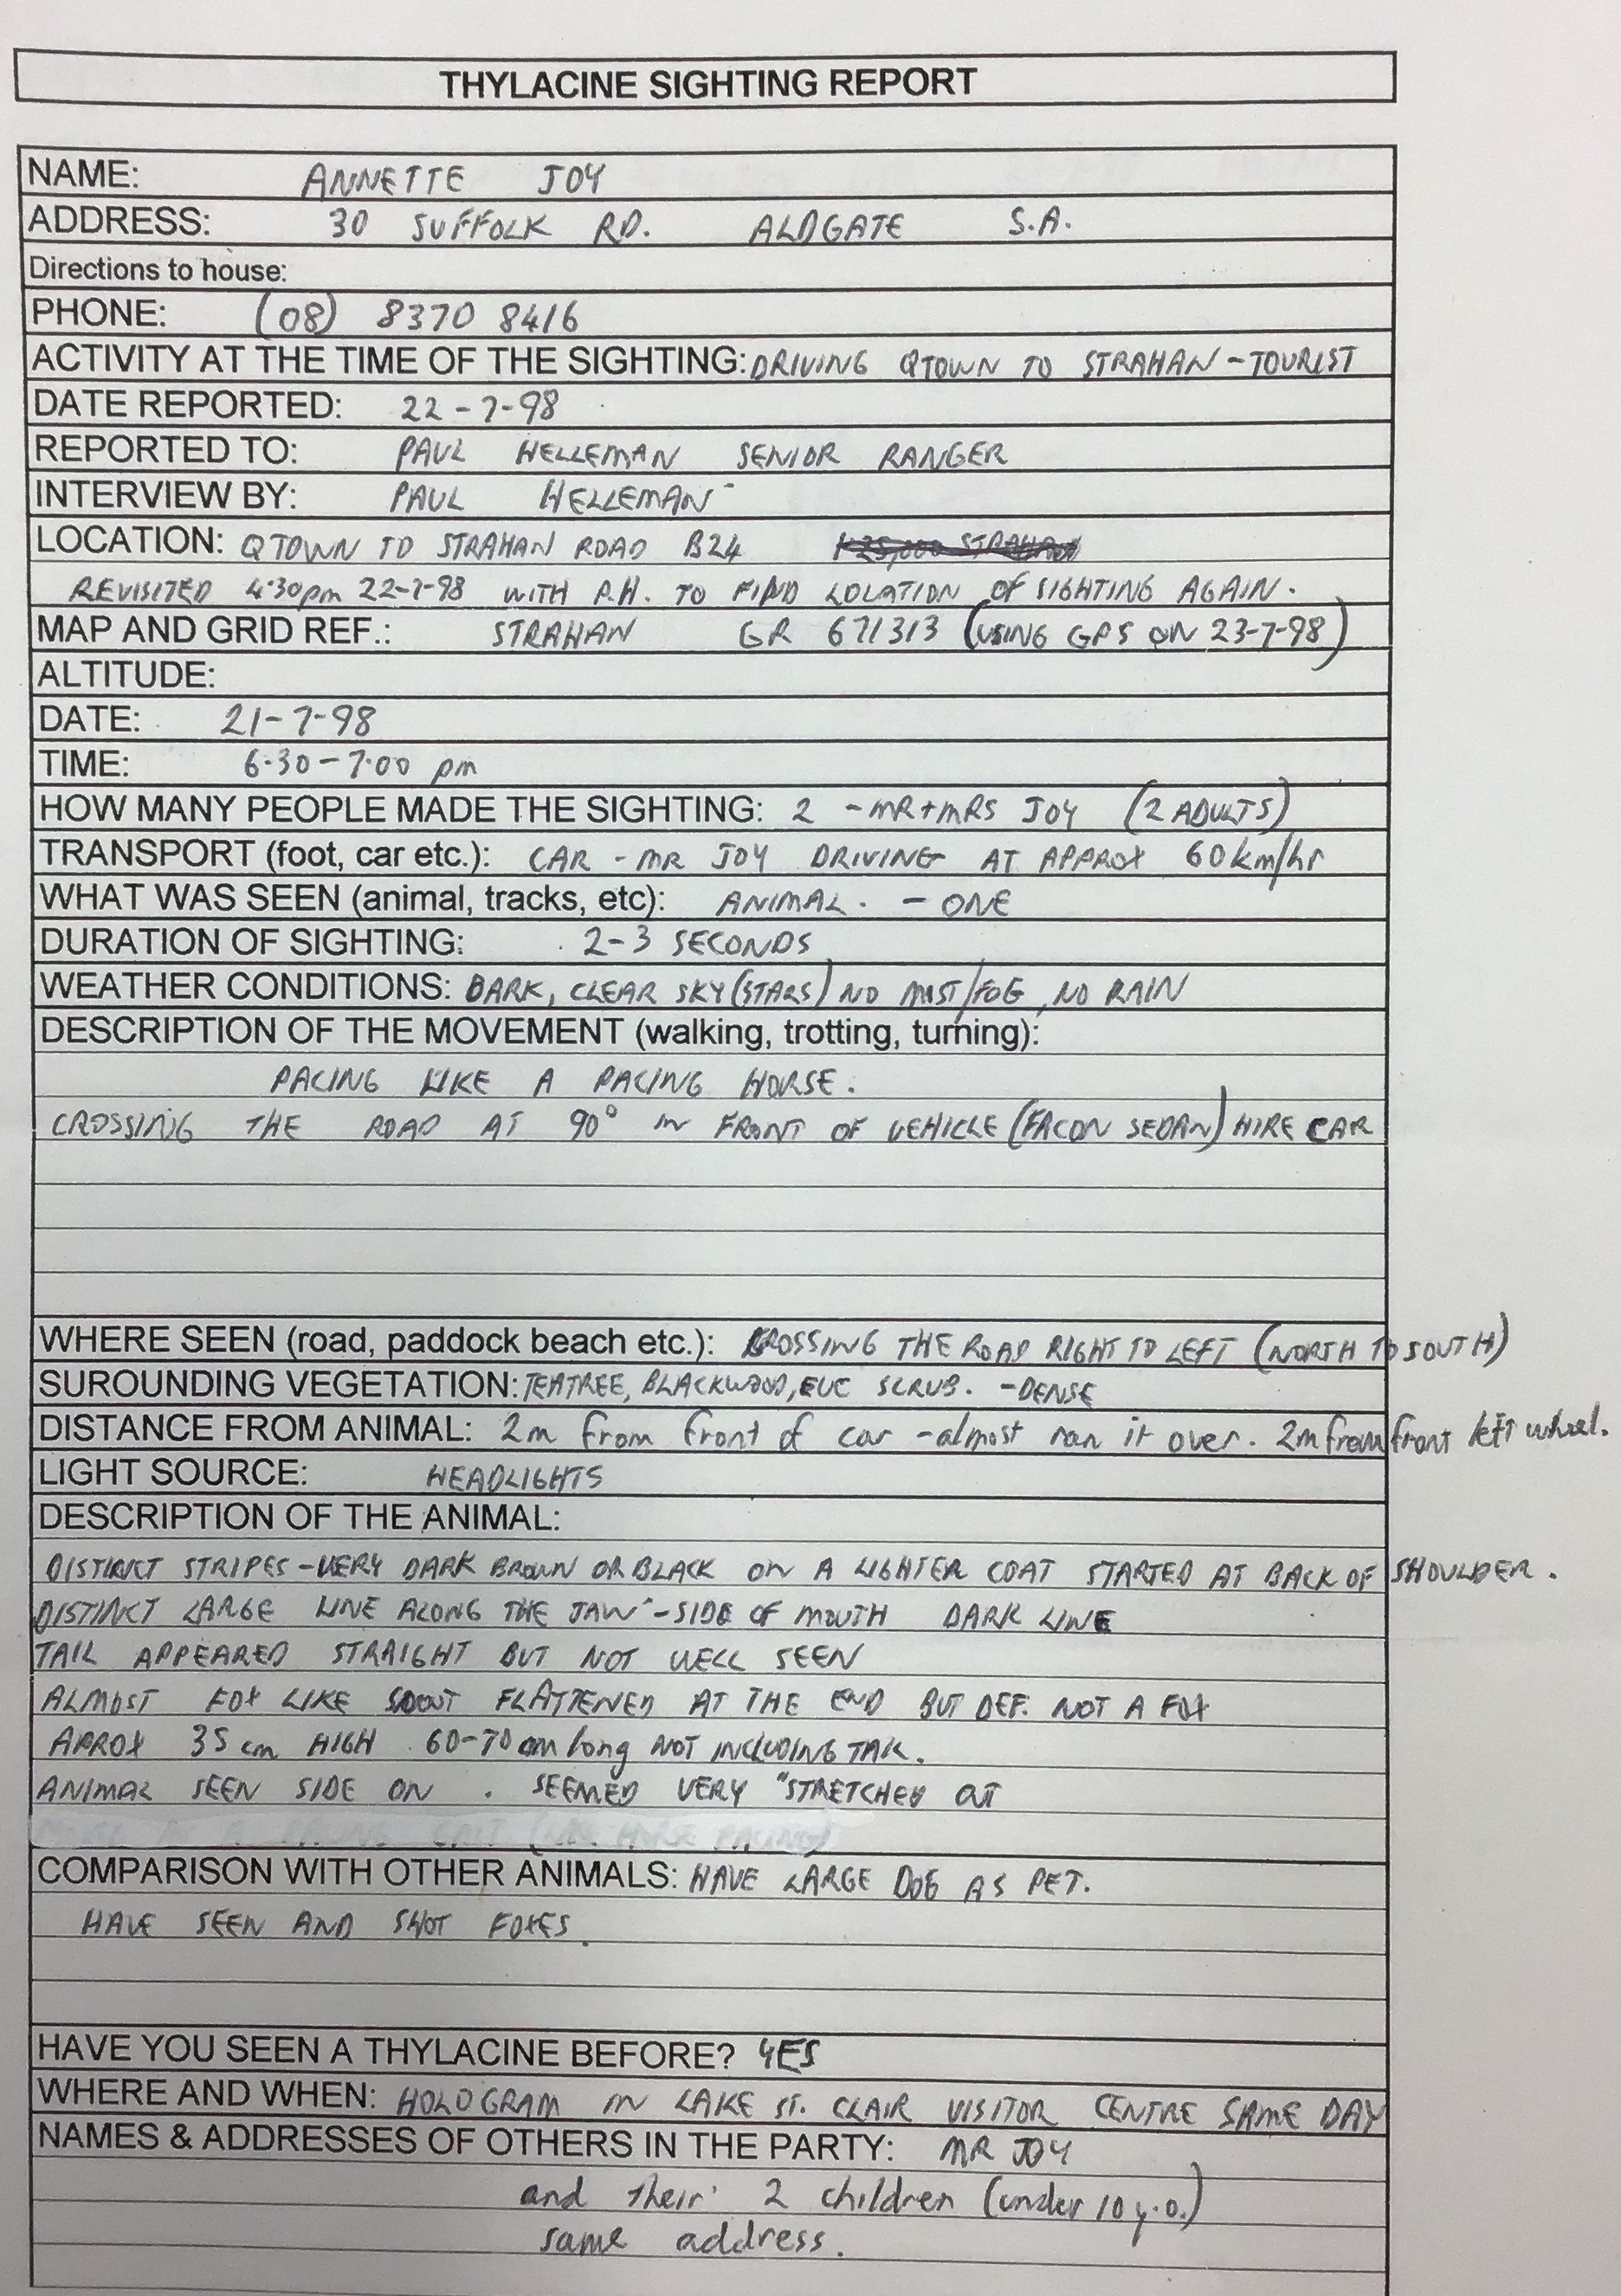 THYLACINE SIGHTING REPORT
NAME: ANNETTE JOY
ADDRESS: 30 SUFFOLK RD. ALDGATE S.A.
Directions to house:
PHONE: (08) 8370 8416
ACTIVITY AT THE TIME OF THE SIGHTING: DRIVING QTOWN TO STRAHAN - TOURIST
DATE REPORTED: 22-7-98
REPORTED TO: PAUL HELLEMAN SENIOR RANGER
INTERVIEW BY: PAUL HELLEMAN
LOCATION: QTOWN TO STRAHAN ROAD B24
REVISITED 4:30pm 22-7-98 WITH P.H. TO FIND LOCATION OF SIGHTING AGAIN.
MAP AND GRID REF.: STRAHAN GR 671313 (USING GPS ON 23-7-98)
ALTITUDE:
DATE: 21-7-98
TIME: 6.30-7.00 pm
HOW MANY PEOPLE MADE THE SIGHTING: 2 - MR+MRS JOY (2 ADULTS)
TRANSPORT (foot, car etc.): CAR - MR JOY DRIVING AT APPROX 60km/hr
WHAT WAS SEEN (animal, tracks, etc): ANIMAL. - ONE
DURATION OF SIGHTING: 2-3 SECONDS
WEATHER CONDITIONS: DARK, CLEAR SKY (STARS) NO MIST/FOG, NO RAIN
DESCRIPTION OF THE MOVEMENT (walking, trotting, turning):
PACING LIKE A PACING HORSE.
CROSSING THE ROAD AT 90° IN FRONT OF VEHICLE (FACON SEDAN) HIRE CAR
WHERE SEEN (road, paddock beach etc.): CROSSING THE ROAD RIGHT TO LEFT (NORTH TO SOUTH)
SUROUNDING VEGETATION: TEATREE, BLACKWOOD, EUC SCRUB. - DENSE
DISTANCE FROM ANIMAL: 2m from front of car - almost ran it over. 2m from front left wheel.
LIGHT SOURCE: HEADLIGHTS
DESCRIPTION OF THE ANIMAL:
DISTINCT STRIPES - VERY DARK BROWN OR BLACK ON A LIGHTER COAT STARTED AT BACK OF SHOULDER.
DISTINCT LARGE LINE ALONG THE JAW - SIDE OF MOUTH DARK LINE
TAIL APPEARED STRAIGHT BUT NOT WELL SEEN
ALMOST FOX LIKE SNOUT FLATTENED AT THE END BUT DEF. NOT A FOX
APROX 35 cm HIGH 60-70 cm long NOT INCLUDING TAIL.
ANIMAL SEEN SIDE ON. SEEMED VERY "STRETCHED OUT
COMPARISON WITH OTHER ANIMALS: HAVE LARGE DOG AS PET.
HAVE SEEN AND SHOT FOXES.
HAVE YOU SEEN A THYLACINE BEFORE? YES
WHERE AND WHEN: HOLOGRAM IN LAKE ST. CLAIR VISITOR CENTRE SAME DAY
NAMES & ADDRESSES OF OTHERS IN THE PARTY: MR JOY
and their 2 children (under 10 y.o.)
same address.